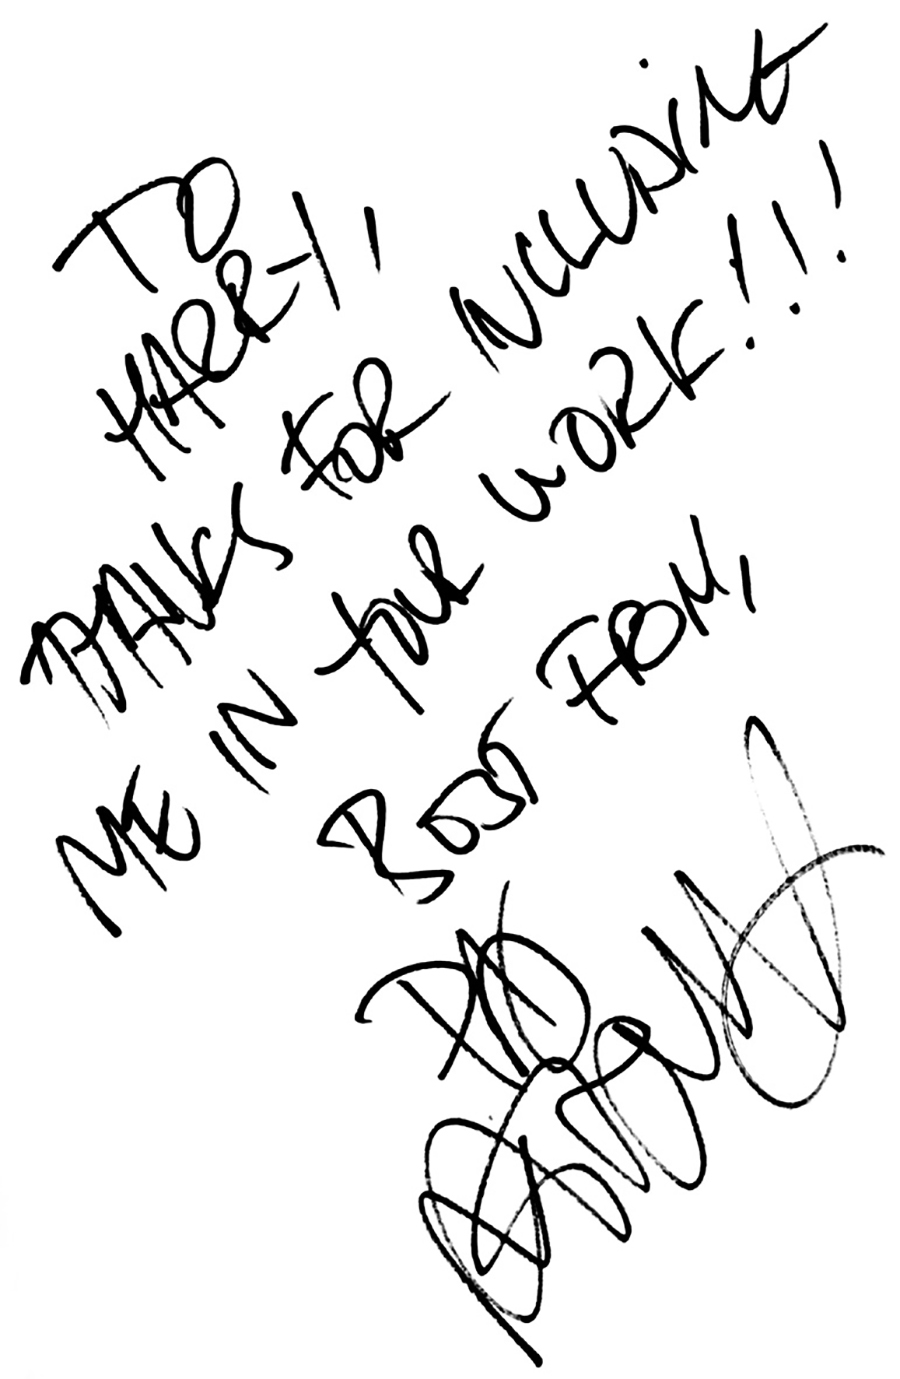 TO
HARRY,
THANKS FOR INCLUDING
ME IN YOUR WORK!!!
BEST FROM,